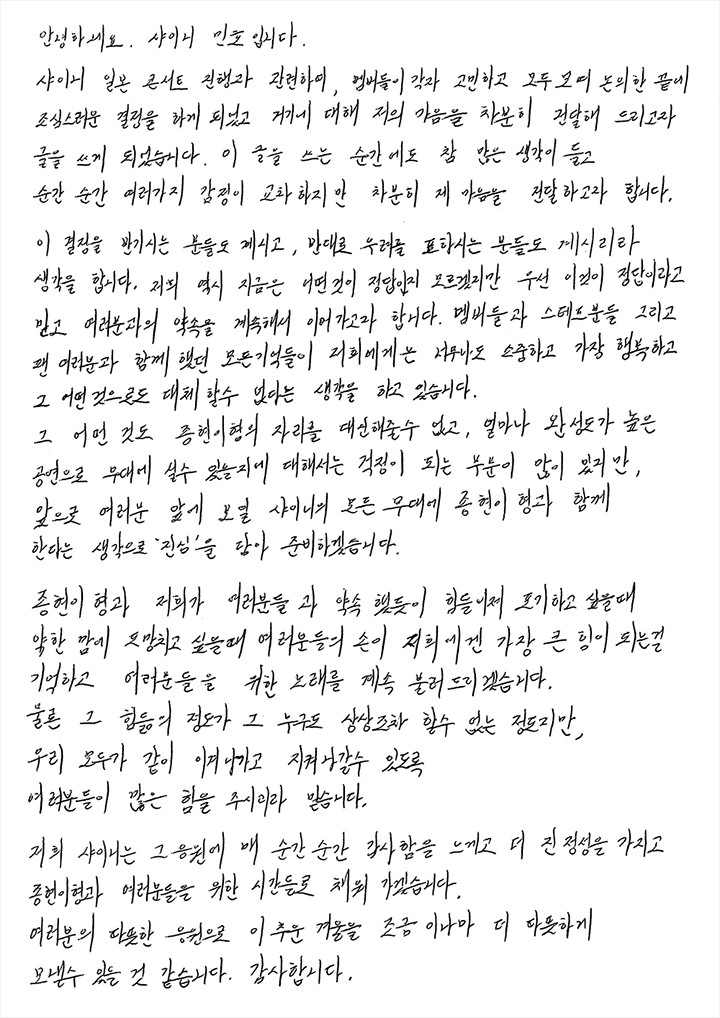 안녕하세요. 샤이니 민호입니다.
샤이니 일본 콘서트 진행과 관련하여, 멤버들이 각자 고민하고 모두 모여 논의한 끝에
조심스러운 결정을 하게 되었고 거기에 대해 저의 마음을 차분히 전달해 드리고자
글을 쓰게 되었습니다. 이 글을 쓰는 순간에도 참 많은 생각이 들고
순간 순간 여러가지 감정이 교차하지만 차분히 제 마음을 전달하고자 합니다.
이 결정을 반기시는 분들도 계시고, 반대로 우려를 표하시는 분들도 계시리라
생각을 합니다. 저희 역시 지금은 어떤것이 정답인지 모르겠지만 우선 이것이 정답이라고
믿고 여러분과의 약속을 계속해서 이어가고자 합니다. 멤버들과 스태프분들 그리고
팬 여러분과 함께 했던 모든기억들이 저희에게는 너무나도 소중하고 가장 행복하고
그 어떤것으로도 대체할수 없다는 생각을 하고 있습니다.
그 어떤 것도 종현이형의 자리를 대신해줄수 없고, 얼마나 완성도가 높은
공연으로 무대에 설수 있을지에 대해서는 걱정이 되는 부분이 많이 있지만,
앞으로 여러분 앞에 보일 샤이니의 모든 무대에 종현이형과 함께
한다는 생각으로 '진심'을 담아 준비하겠습니다.
종현이형과 저희가 여러분들과 약속 했듯이 힘들어져 포기하고 싶을때
약한 맘에 도망치고 싶을때 여러분들의 손이 저희에겐 가장 큰 힘이 되는걸
기억하고 여러분들을 위한 노래를 계속 불러드리겠습니다.
물론 그 힘듦의 정도가 그 누구도 상상조차 할수 없는 정도지만,
우리 모두가 같이 이겨나가고 지켜나갈수 있도록
여러분들이 많은 힘을 주시리라 믿습니다.
저희 샤이니는 그 응원에 매 순간순간 감사함을 느끼고 더 진정성을 가지고
종현이형과 여러분들을 위한 시간들로 채워 가겠습니다.
여러분의 따뜻한 응원으로 이 추운 겨울을 조금이나마 더 따뜻하게
보낼수 있을 것 같습니다. 감사합니다.